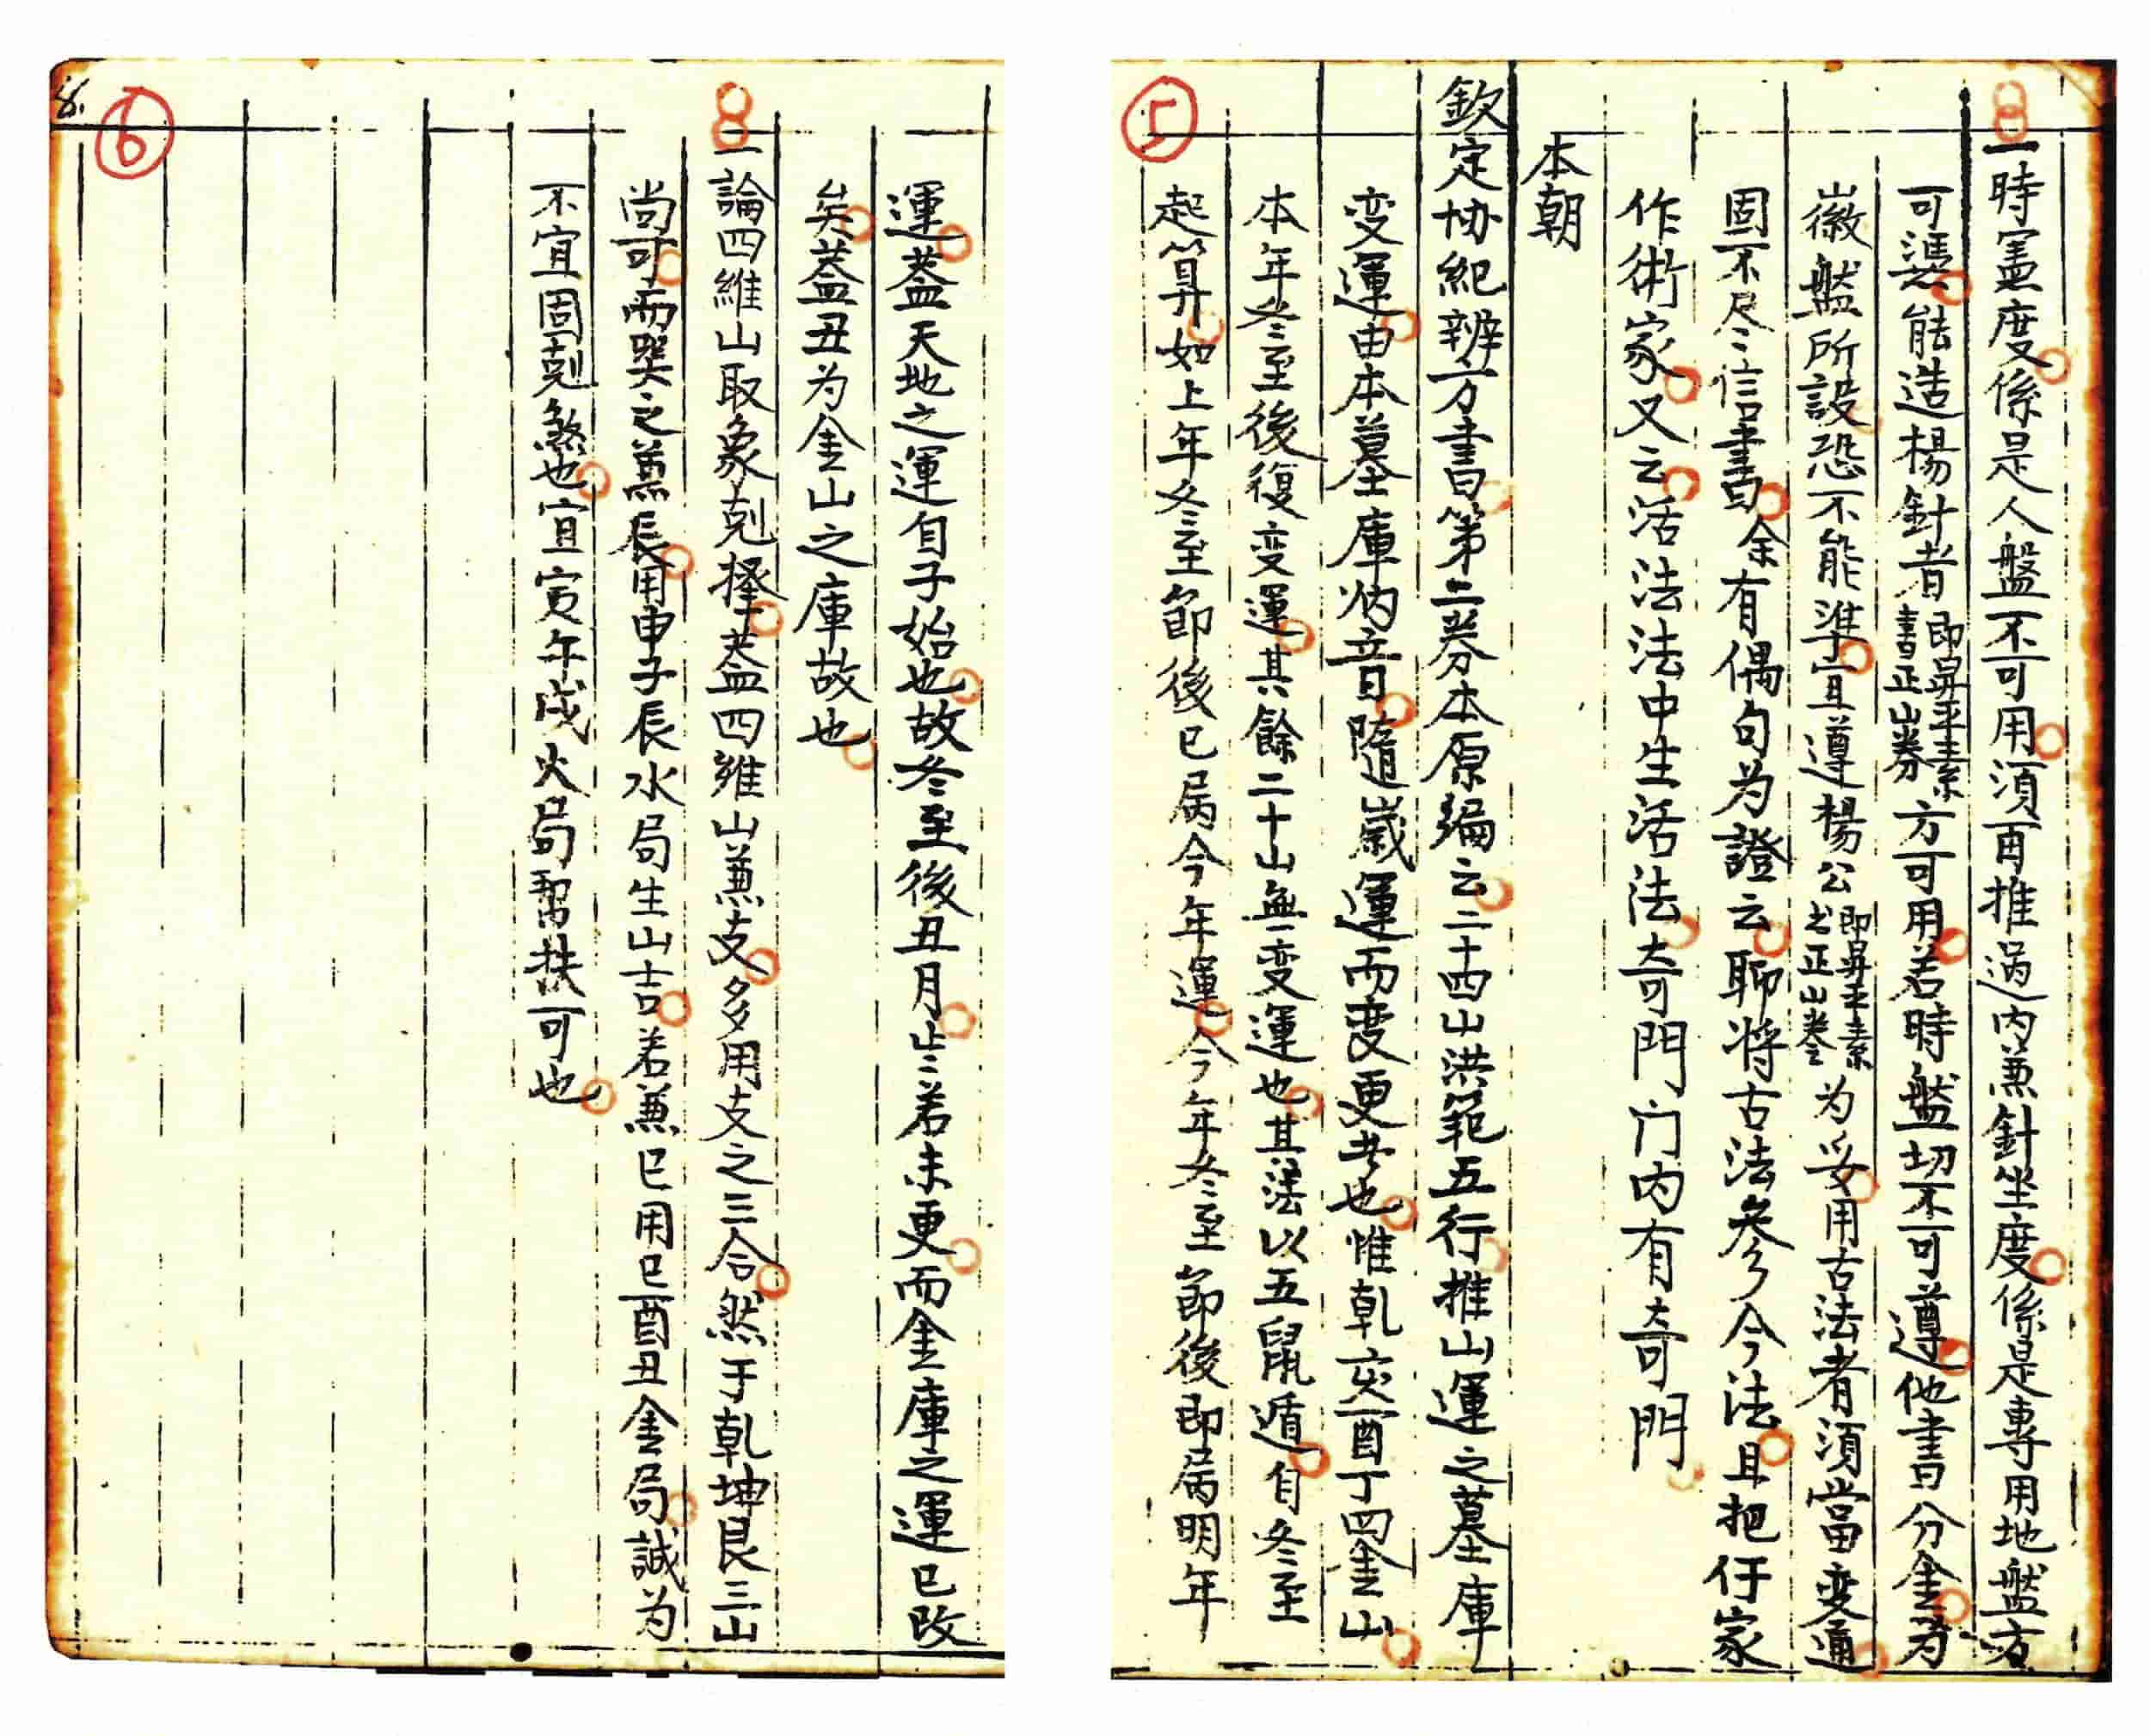 ⑤
一時憲度係是人盤不可用須再推過内兼針坐度係是專用地盤方
可憑能造楊針者即昇平素書正山劵方可用若時盤切不可遵他書分金为
徽盤所設恐不能準宜遵楊公即昇平素书正山卷为妥用古法者須當变通
固不尽〻信書余有偶句为證云聊将古法參今法且把仔家
作術家又云活法法中生活法奇門门内有奇門
本朝
欽定协纪辨方書第二劵本原编云二十四山洪範五行推山運之墓庫
变運由本墓庫纳音隨歲運而变更者也惟乹亥酉丁四金山
本年冬至後復变運其餘二十山無变運也其法以五鼠遁自冬至
起算如上年冬至節後已属今年運今年冬至節後即属明年
⑥
8.
運蓋天地之運自子始也故冬至後丑月岁若未更而金庫之運已改
矣蓋丑为金山之庫故也
一論四維山取象剋擇蓋四維山兼支多用支之三合然于乹坤艮三山
尚可而巽之兼辰用申子辰水局生山吉若兼巳用巳酉丑金局誠为
不宜固剋煞也宜寅午戌火局幫扶可也